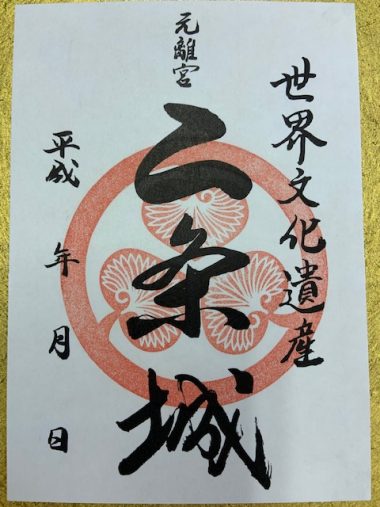 世界文化遺産
元離宮
二条城
平成 年 月 日